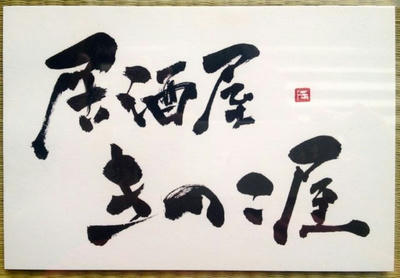 居酒屋
きのこ